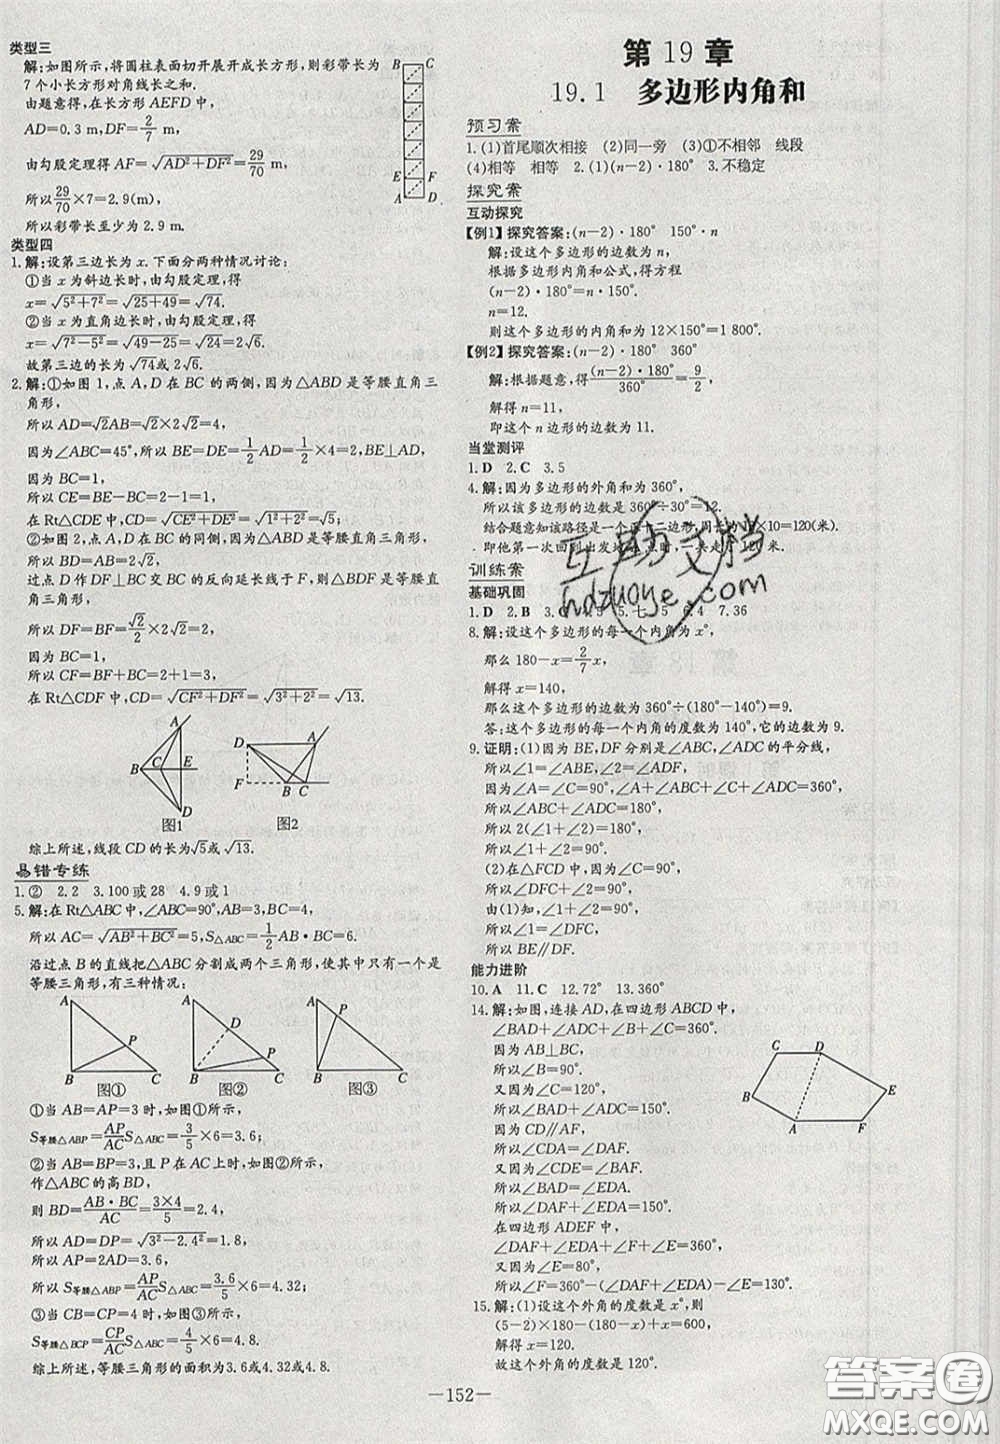 类型三
解:如图所示,将圆柱表面切开展开成长方形,则彩带长为
7个小长方形对角线长之和.
由题意得,在长方形 AEFD 中,
AD=0.3 m,DF=2/7 m,
由勾股定理得 AF=√(AD²+DF²)=29/70 m,
所以 29/70×7=2.9(m),
所以彩带长至少为 2.9 m.
B C
E F
A D
类型四
1.解:设第三边长为 x.下面分两种情况讨论:
①当 x 为斜边长时,由勾股定理,得
x=√(5²+7²)=√(25+49)=√74.
②当 x 为直角边长时,由勾股定理,得
x=√(7²-5²)=√(49-25)=√24=2√6.
故第三边的长为 √74 或 2√6.
2.解:①如图1,点 A,D 在 BC 的两侧,因为△ABD 是等腰直角三
角形,
所以 AD=√2AB=√2×2√2=4,
因为∠ABC=45°,所以 BE=DE=1/2 AD=1/2×4=2,BE⊥AD,
因为 BC=1,
所以 CE=BE-BC=2-1=1,
在 Rt△CDE 中,CD=√(CE²+DE²)=√(1²+2²)=√5;
②如图2,点 A,D 在 BC 的同侧,因为△ABD 是等腰直角三角形,
所以 BD=AB=2√2,
过点 D 作 DF⊥BC 交 BC 的反向延长线于 F,则△BDF 是等腰直
角三角形,
所以 DF=BF=√2/2×2√2=2,
因为 BC=1,
所以 CF=BF+BC=2+1=3,
在 Rt△CDF 中,CD=√(CF²+DF²)=√(3²+2²)=√13.
A
B C E
D
图1
D A
F B C
图2
综上所述,线段 CD 的长为 √5 或 √13.
易错专练
1.② 2.2 3.100 或 28 4.9 或 1
5.解:在 Rt△ABC 中,∠ABC=90°,AB=3,BC=4,
所以 AC=√(AB²+BC²)=5,S△ABC=1/2×3×4=6.
沿过点 B 的直线把△ABC 分割成两个三角形,使其中只有一个是
等腰三角形,有三种情况:
A P B C 图①
A D P B C 图②
A P B C 图③
①当 AB=AP=3 时,如图①所示,
S等腰△ABP=AP/AC S△ABC=3/5×6=3.6;
②当 AB=BP=3,且 P 在 AC 上时,如图②所示,
作△ABC 的高 BD,
则 BD=AB·BC/AC=3×4/5=2.4,
所以 AD=DP=√(3²-2.4²)=1.8,
所以 AP=2AD=3.6,
所以 S等腰△ABP=AP/AC S△ABC=3.6/5×6=4.32;
③当 CB=CP=4 时,如图③所示,
S等腰△BCP=CP/AC S△ABC=4/5×6=4.8.
综上所述,等腰三角形的面积为 3.6 或 4.32 或 4.8.
第 19 章
19.1 多边形内角和
预习案
1.(1)首尾顺次相接 (2)同一旁 (3)①不相邻 线段
(4)相等 相等 2.(1)(n-2)·180° 3.不稳定
探究案
互动探究
【例1】探究答案:(n-2)·180° 150°·n
解:设这个多边形的边数为 n,
根据多边形内角和公式,得方程
(n-2)·180°=n·150°,
n=12.
则这个多边形的内角和为 12×150°=1 800°.
【例2】探究答案:(n-2)·180° 360°
解:根据题意,得 (n-2)·180°/360°=9/2,
解得 n=11,
即这个 n 边形的边数为 11.
当堂测评
1.D 2.C 3.5
4.解:因为多边形的外角和为 360°,
所以该多边形的边数为 360°÷30°=12.
结合题意知该路径是一个正十二边形,周长为12×10=120(米).
即他第一次回到出发地A点时,一共走了120米.
训练案
基础巩固
1.D 2.B 3.C 4.5 5.七 5 6.4 7.36
8.解:设这个多边形的每一个内角为 x°,
那么 180-x=2/7 x,
解得 x=140,
那么这个多边形的边数为 360°÷(180°-140°)=9.
答:这个多边形的每一个内角的度数为 140°,它的边数为 9.
9.证明:(1)因为 BE,DF 分别是∠ABC,∠ADC 的平分线,
所以∠1=∠ABE,∠2=∠ADF,
因为∠A=∠C=90°,
所以∠ABC+∠ADC=180°,
所以 2(∠1+∠2)=180°,
所以∠1+∠2=90°.
(2)在△FCD 中,因为∠C=90°,
所以∠DFC+∠2=90°,
由(1)知,∠1+∠2=90°,
所以∠1=∠DFC,
所以 BE∥DF.
能力进阶
10.A 11.C 12.72° 13.360°
14.解:如图,连接 AD,在四边形 ABCD 中,
∠BAD+∠ADC+∠B+∠C=360°.
因为 AB⊥BC,
所以∠B=90°.
又因为∠C=120°,
所以∠BAD+∠ADC=150°.
因为 CD∥AF,
所以∠CDA=∠DAF.
又因为∠CDE=∠BAF.
所以∠BAD=∠EDA.
所以∠DAF+∠EDA=150°.
在四边形 ADEF 中,
∠DAF+∠EDA+∠E+∠F=360°,
又因为∠E=80°,
所以∠F=360°-(∠DAF+∠EDA)-∠E=130°.
C D
B E
A F
15.解:(1)设这个外角的度数是 x°,则
(5-2)×180-(180-x)+x=600,
解得 x=120.
故这个外角的度数是 120°.
—152—
互助文档
hdzuoye.com
答案圈
MXQE.COM